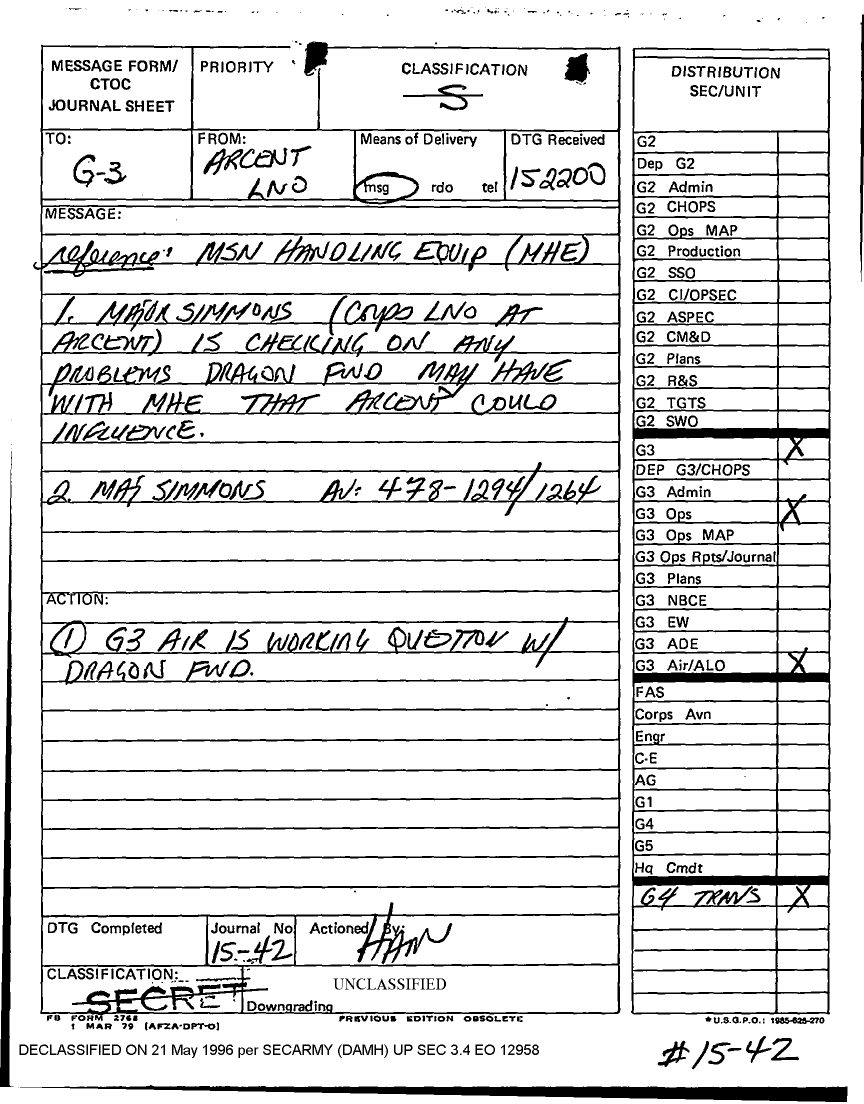 MESSAGE FORM/ CTOC JOURNAL SHEET
PRIORITY
CLASSIFICATION
S
TO:
G-3
FROM:
ARCENT
LNO
Means of Delivery
msg rdo tel
DTG Received
152200
MESSAGE:
reference: MSN HANDLING EQUIP (MHE)
1. MAJOR SIMMONS (Corps LNO AT
ARCENT) IS CHECKING ON ANY
PROBLEMS DRAGON FWD MAY HAVE
WITH MHE THAT ARCENT COULD
INFLUENCE.
2. MAJ SIMMONS AV: 478-1294/1264
ACTION:
① G3 AIR IS WORKING QUESTION W/
DRAGON FWD.
DTG Completed
Journal No
15-42
Actioned By:
HAN
CLASSIFICATION:
SECRET
UNCLASSIFIED
Downgrading
FB FORM 2768
1 MAR 79 (AFZA-DPT-O)
PREVIOUS EDITION OBSOLETE
DISTRIBUTION
SEC/UNIT
G2
Dep G2
G2 Admin
G2 CHOPS
G2 Ops MAP
G2 Production
G2 SSO
G2 CI/OPSEC
G2 ASPEC
G2 CM&D
G2 Plans
G2 R&S
G2 TGTS
G2 SWO
G3 X
DEP G3/CHOPS
G3 Admin
G3 Ops X
G3 Ops MAP
G3 Ops Rpts/Journal
G3 Plans
G3 NBCE
G3 EW
G3 ADE
G3 Air/ALO X
FAS
Corps Avn
Engr
C-E
AG
G1
G4
G5
Hq Cmdt
G4 TRANS X
★U.S.G.P.O.: 1985-625-270
DECLASSIFIED ON 21 May 1996 per SECARMY (DAMH) UP SEC 3.4 EO 12958
#15-42